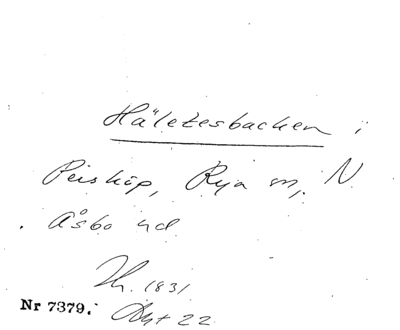 Häletesbacken i
Perstorp, Rya sn, N
Åsbo hd
1831
Nr 7379. Akt 22